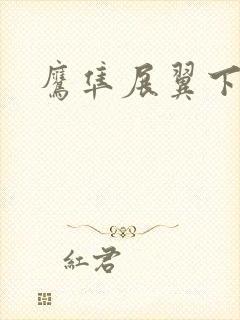 鷹隼展翼下
紅君